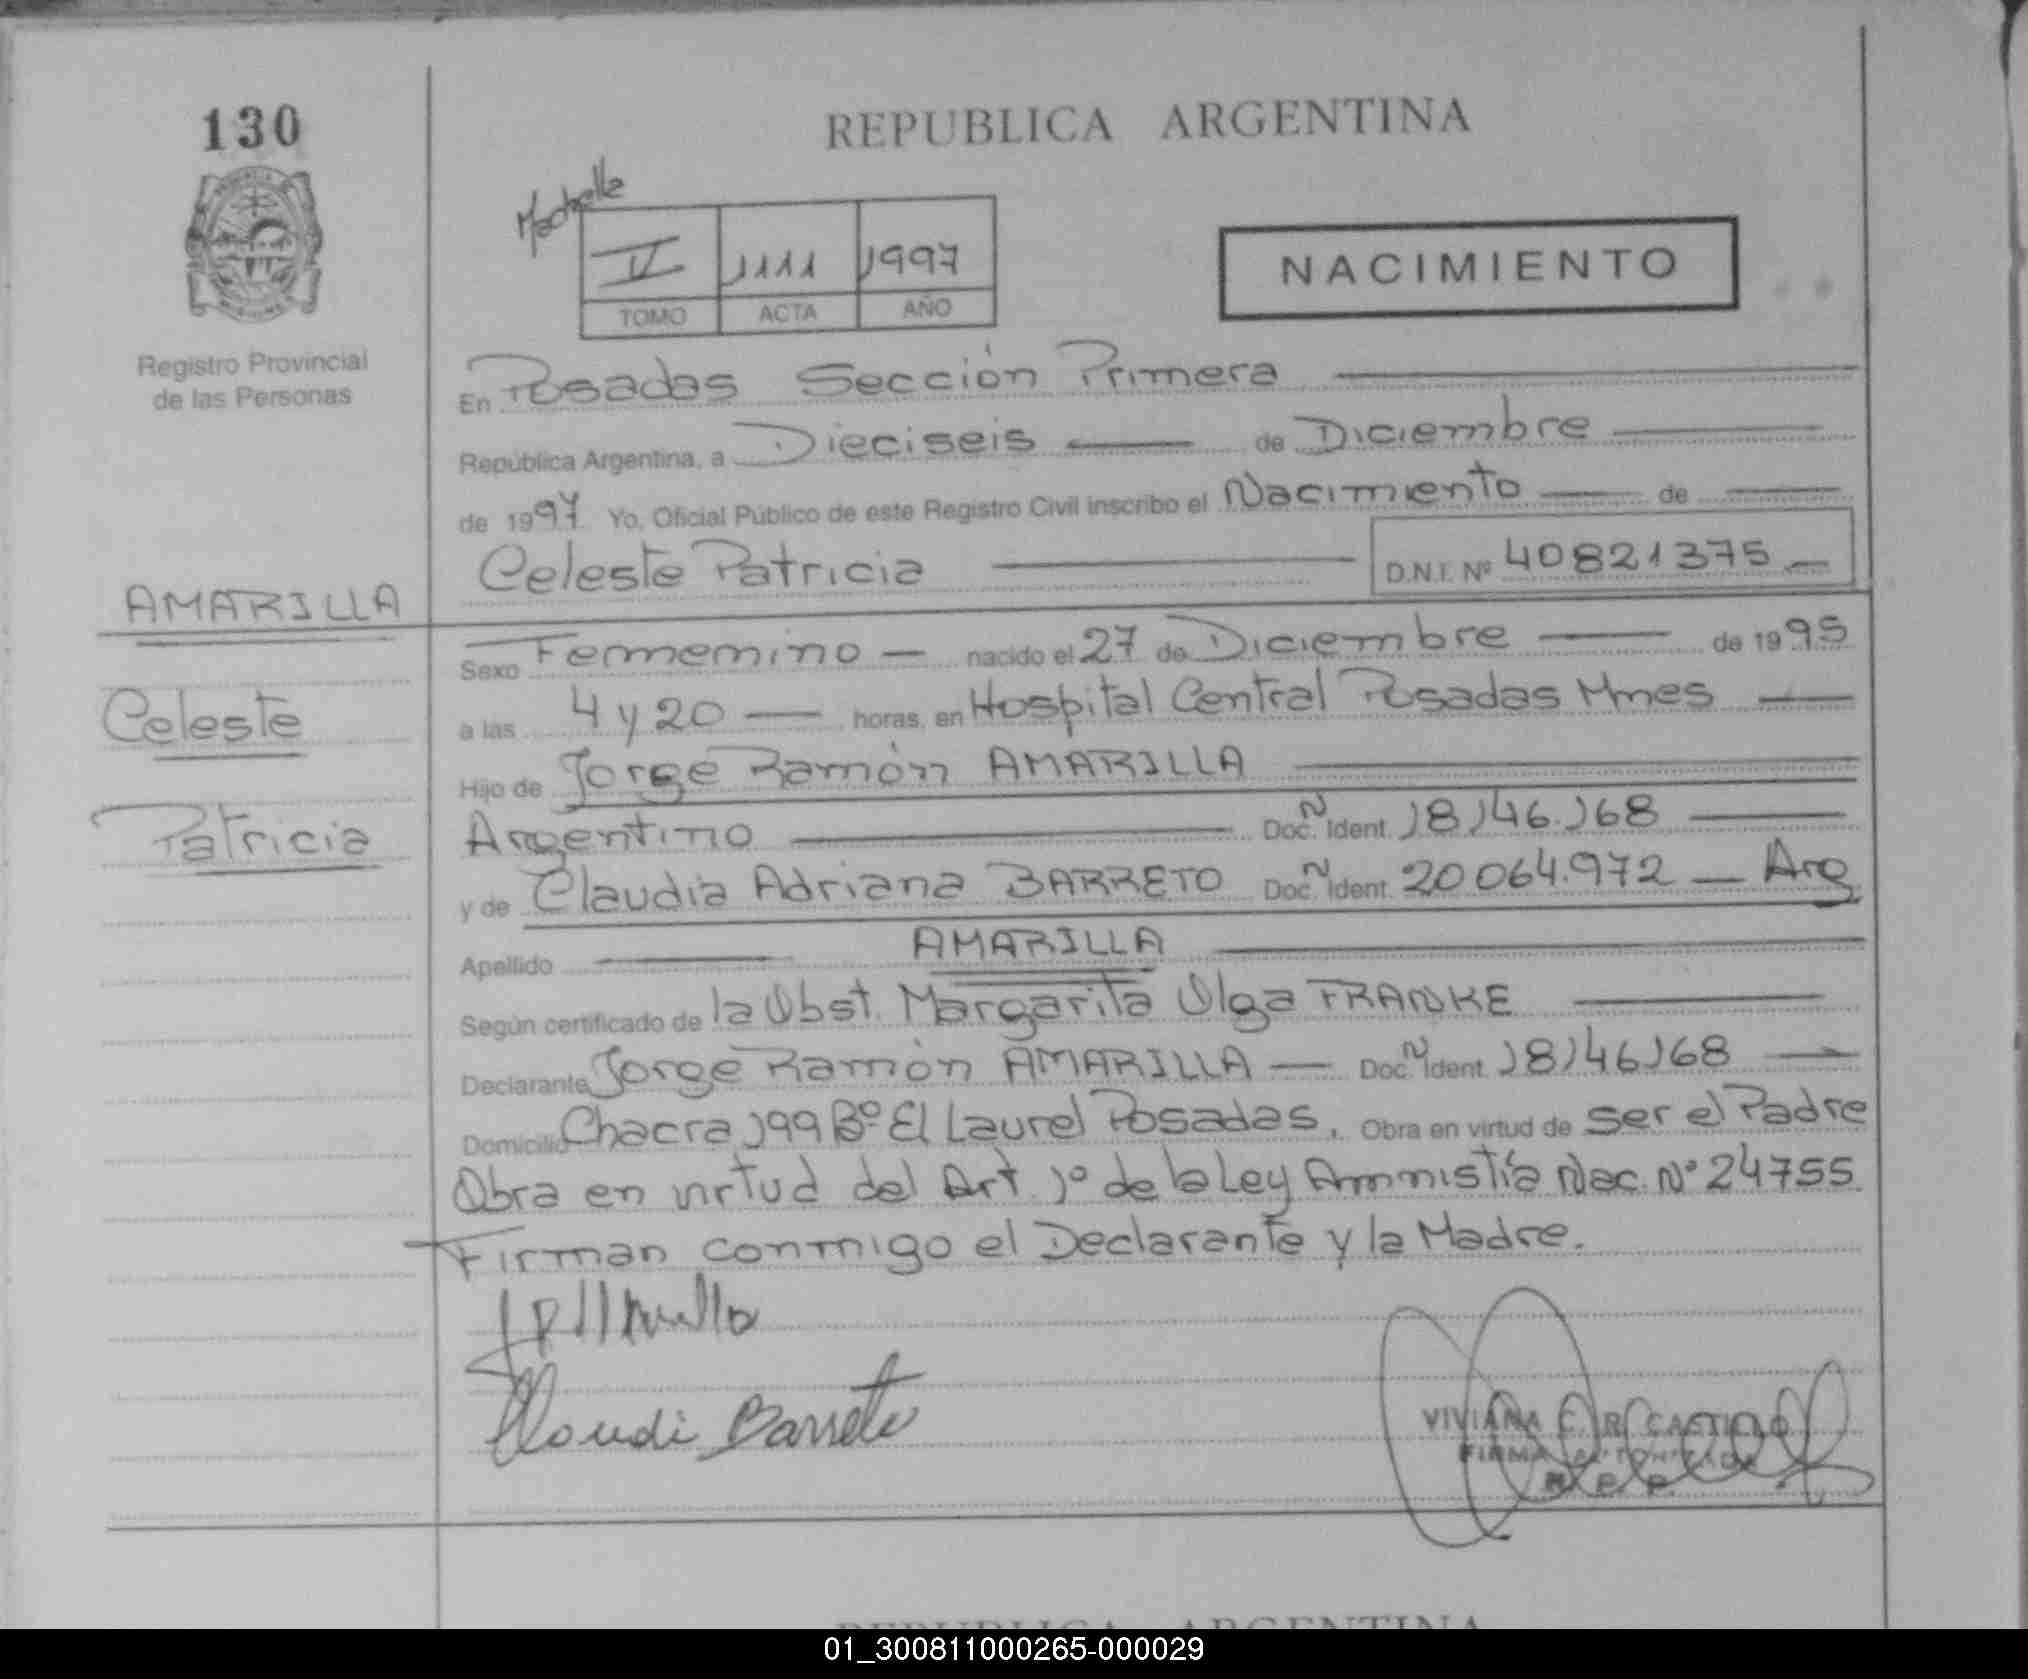 130
REPUBLICA ARGENTINA
IV 1111 1997
TOMO ACTA AÑO
NACIMIENTO
Registro Provincial
de las Personas
En Posadas Sección Primera
República Argentina, a Dieciseis de Diciembre
de 1997 Yo, Oficial Público de este Registro Civil inscribo el Nacimiento de
Celeste Patricia D.N.I. Nº 40821375
AMARILLA
Celeste
Patricia
Sexo Fememino nacido el 27 de Diciembre de 1995
a las 4 y 20 horas, en Hospital Central Posadas Mnes
Hijo de Jorge Ramón AMARILLA
Argentino Doc. N Ident. 18146.168
y de Claudia Adriana BARRETO Doc. N Ident. 20064.972 Arg
Apellido AMARILLA
Según certificado de la Obst. Margarita Olga FRANKE
Declarante Jorge Ramón AMARILLA Doc. N Ident. 18146168
Domicilio Chacra 199 Bº El Laurel Posadas. Obra en virtud de ser el Padre
Obra en virtud del Art 1º de la Ley Ammistía Nac. Nº 24755
Firman conmigo el Declarante y la Madre.
Claudi Barreto
VIVIANA C. R. CASTILLO
FIRMA AUTORIZADA
R. P. P.
REPUBLICA ARGENTINA
01_300811000265-000029